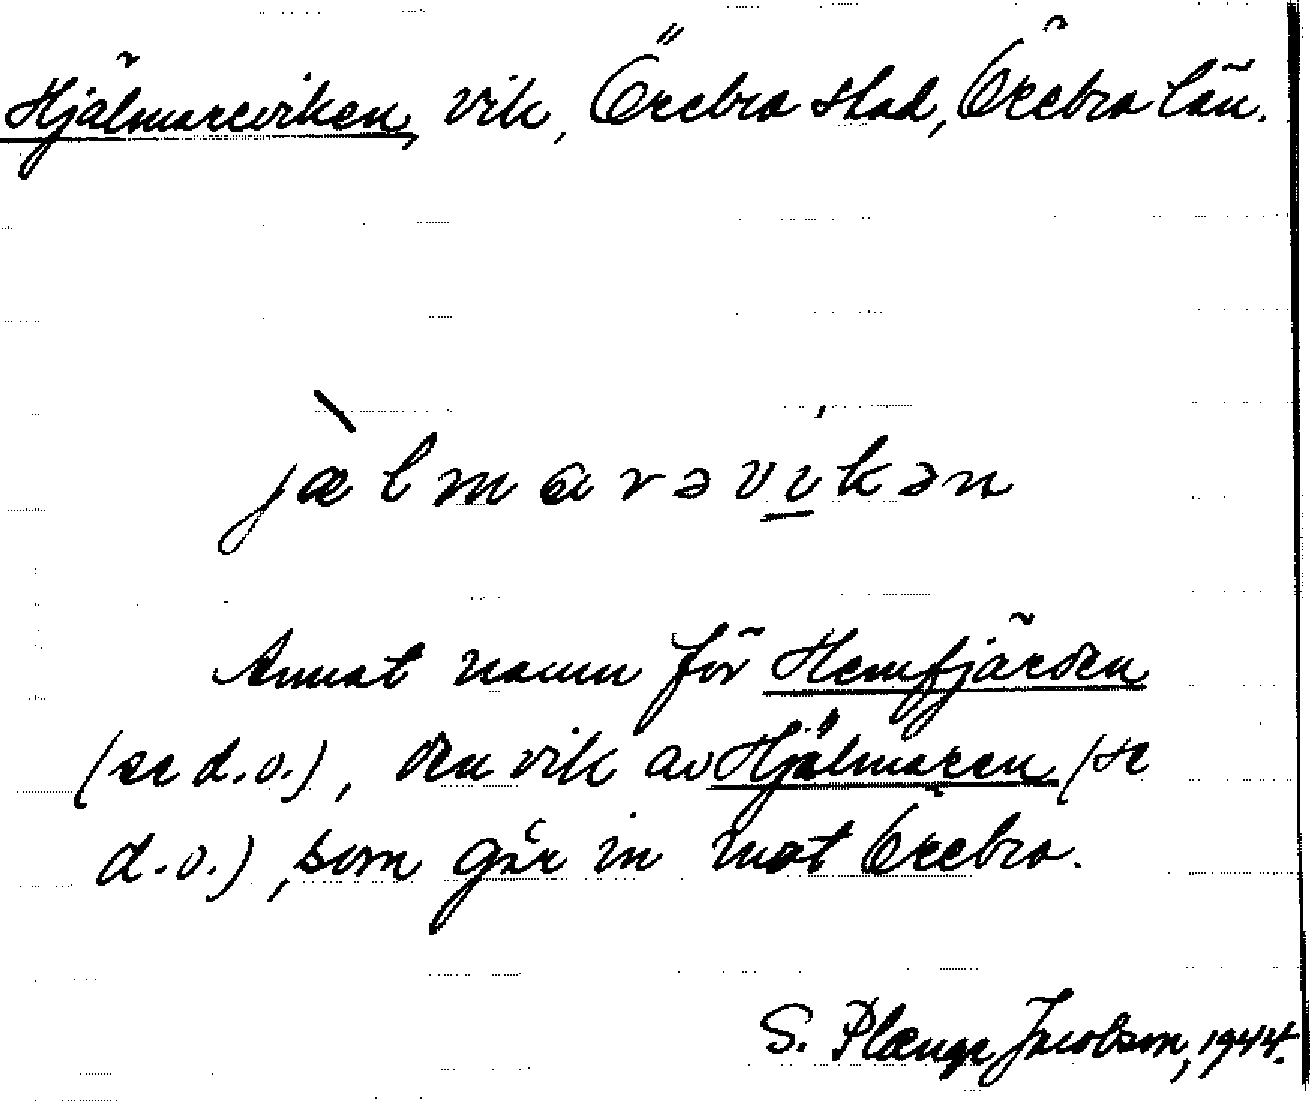 Hjälmareviken, vik, Örebro stad, Örebro län.
jælmarəvikən
Annat namn för Hemfjärden
(se d.o.), den vik av Hjälmaren (se
d.o.), som går in mot Örebro.
S. Plænge Jacobson, 1944.